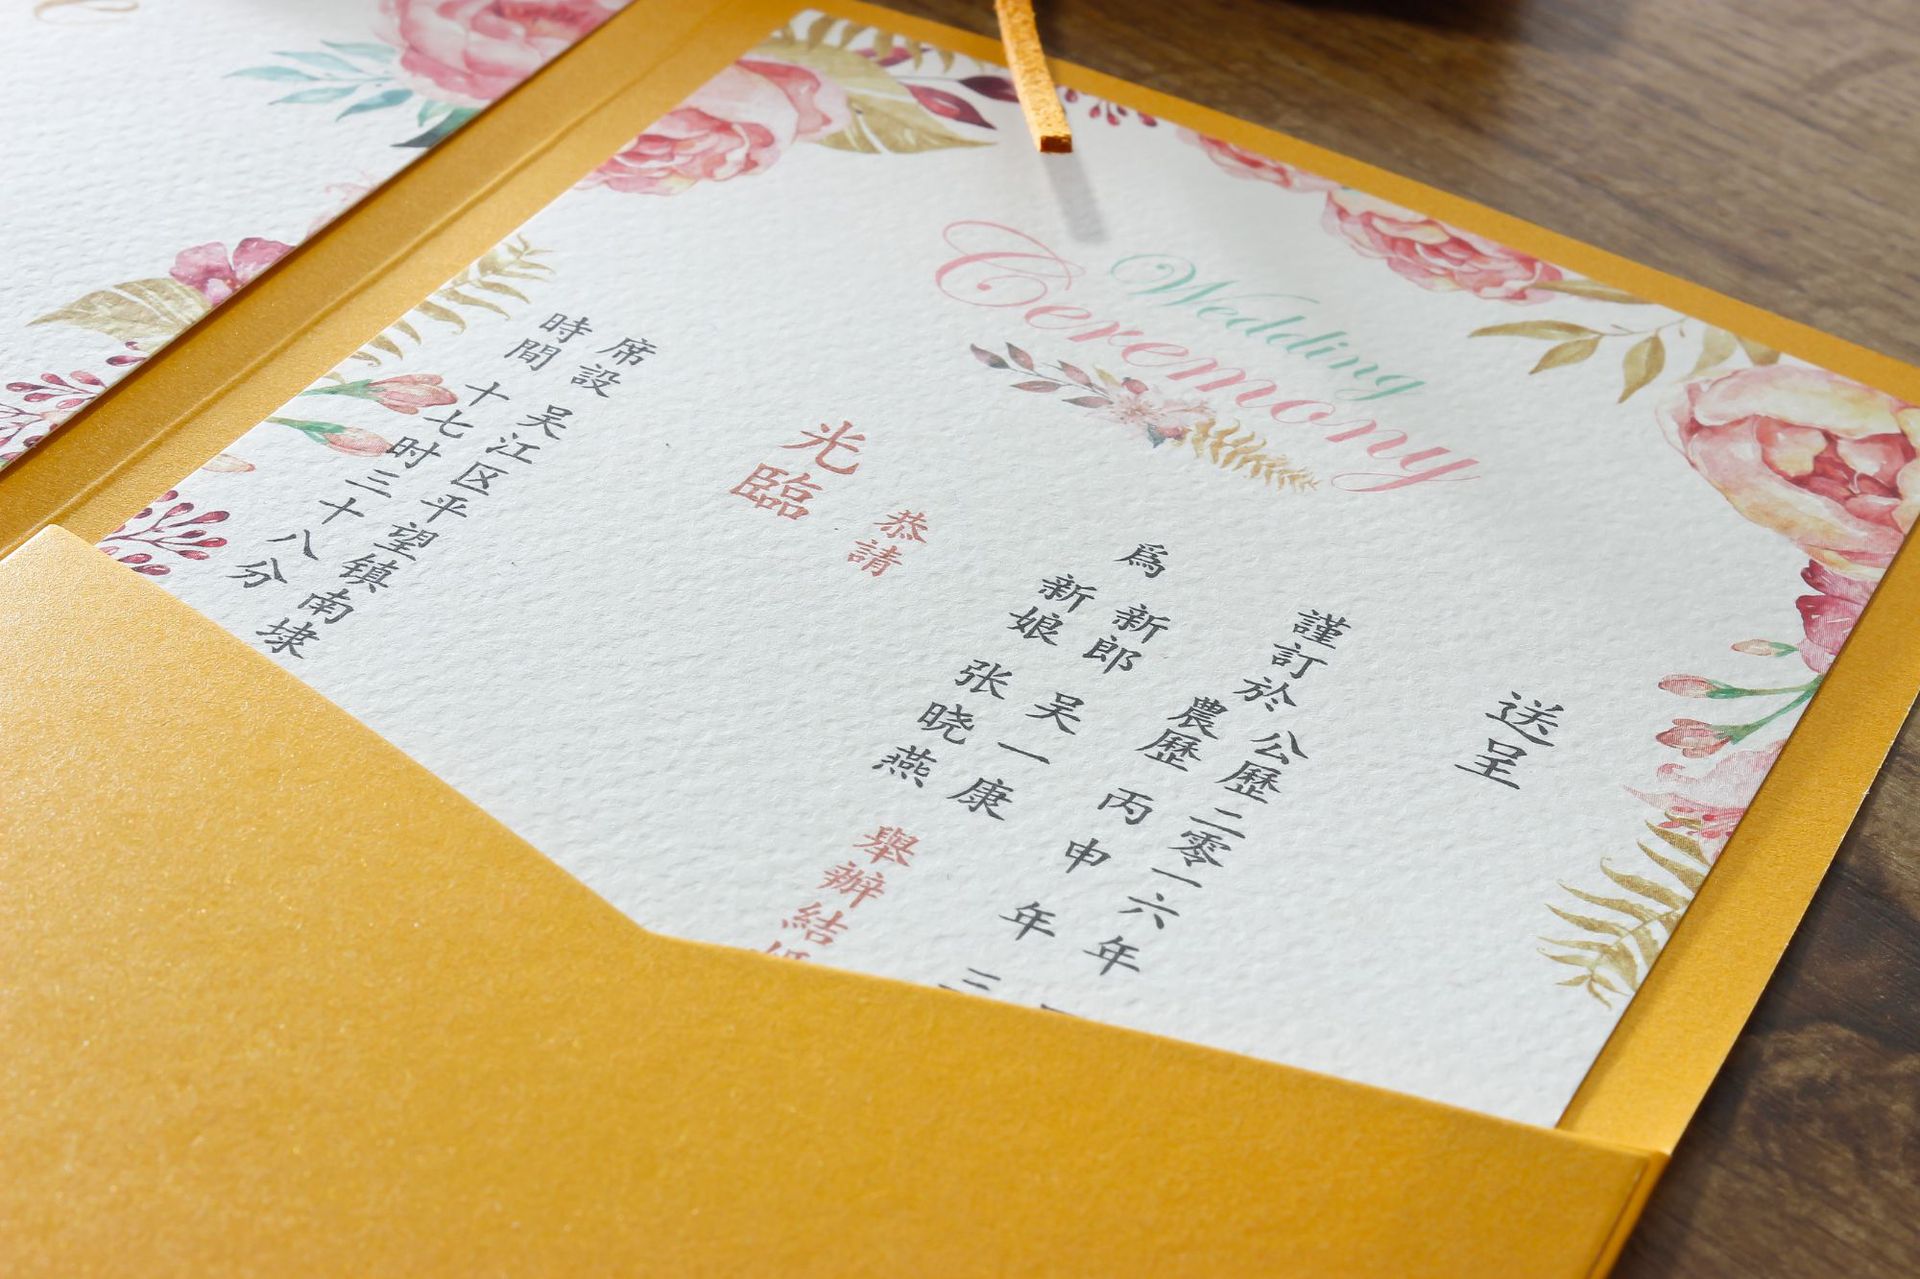 Wedding
Ceremony
送呈
謹訂於 公歷 二零一六年
農歷 丙申年 三
爲 新郎 吴一康
新娘 张晓燕 舉辦結
恭請
光臨
席設 吴江区平望镇南埭
時間 十七时三十八分